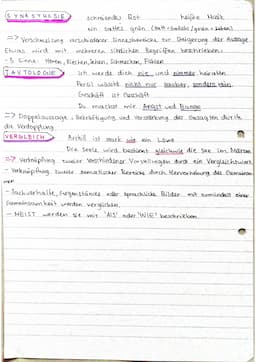 SYNÄSTHESIE schreiendes Rot heiße Musik
ein sattes grün (satt = Gefühl / grün = sehen)
=> Verschmelzung verschiedener Sinneseindrücke zur Steigerung der Aussage
Etwas wird mit mehreren sinnlichen Begriffen beschrieben.
- 5 Sinne: Hören, Riechen, Sehen, Schmecken, Fühlen
TAUTOLOGIE Ich werde dich nie und nimmer heiraten
Persil wäscht nicht nur sauber, sondern rein.
Geschäft ist Geschäft
Du machst mir Angst und Bange
=> Doppelaussage - Bekräftigung und Verstärkung des Gesagten durch
die Verdopplung
VERGLEICH Achill ist stark wie ein Löwe
Die Seele wird bestürmt gleichwie die See im Märzen
=> Verknüpfung zweier verschiedener Vorstellungen durch ein Vergleichswort
- Verknüpfung zweier semantischer Bereiche durch Hervorhebung des Gemeinsa-
men
- Sachverhalte, Gegenstände oder sprachliche Bilder mit zumindest einer
Gemeinsamkeit werden verglichen.
- MEIST werden sie mit 'ALS' oder 'WIE' beschrieben